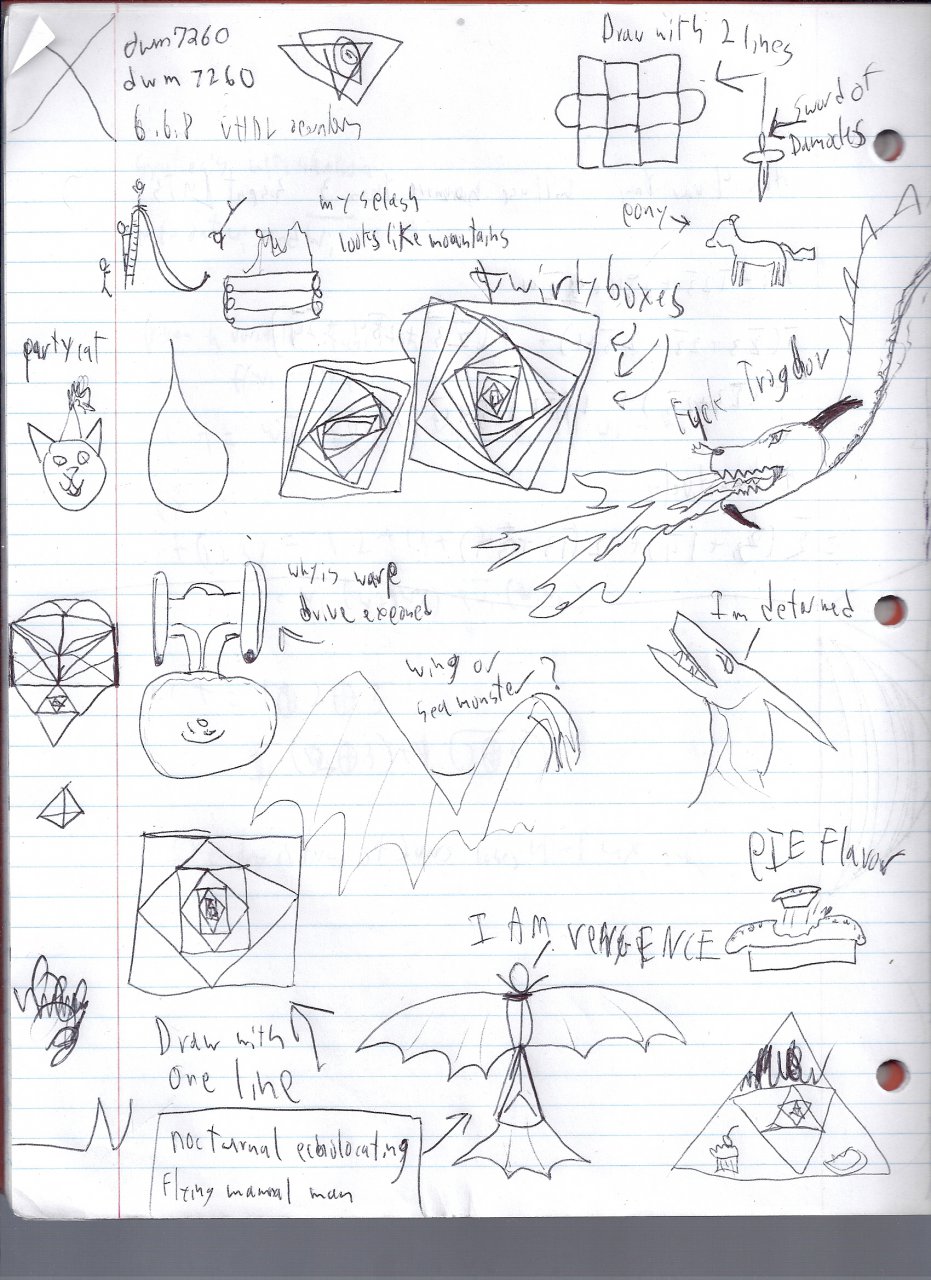 dwm7260
dwm 7260
6.6.8 VHDL
Draw with 2 lines
Sword of
Damocles
my splash
looks like mountains
pony
twirly boxes
party cat
Fuck Trogdor
why is warp
drive exposed
I'm deformed
wing or
sea monster?
PIE Flavor
I AM VENGENCE
Draw with
one line
nocturnal echolocating
Flying mammal man